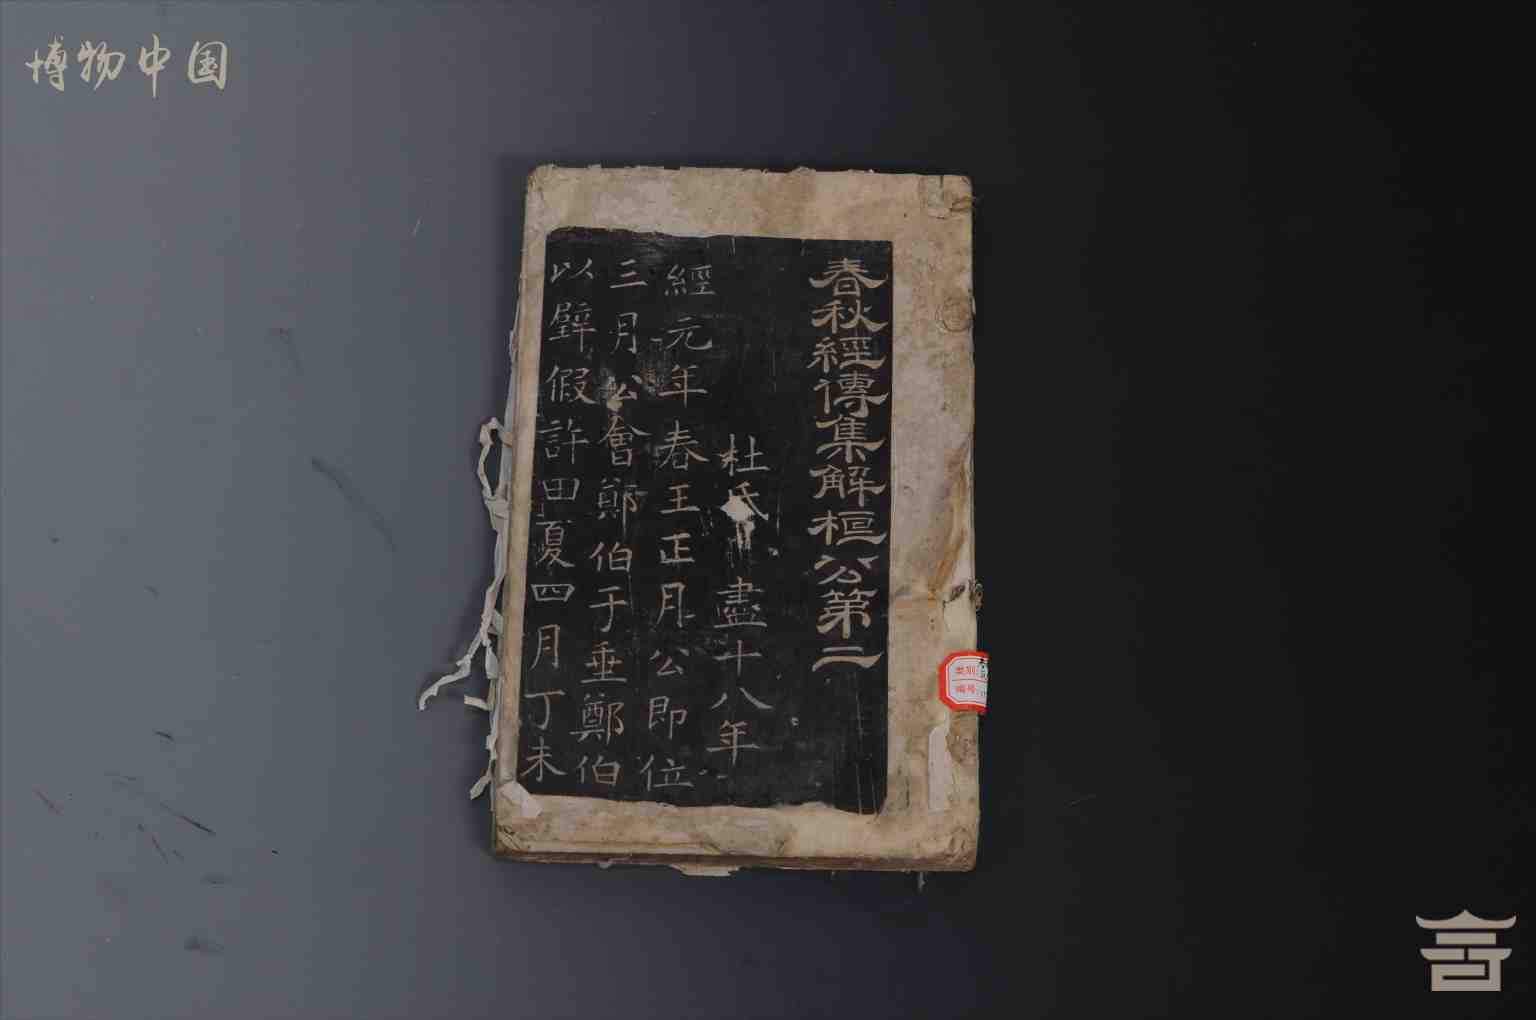 博物中国
春秋經傳集解桓公第二
杜氏 盡十八年
經元年春王正月公即位
三月公會鄭伯于垂鄭伯
以璧假許田夏四月丁未
类别:
编号: